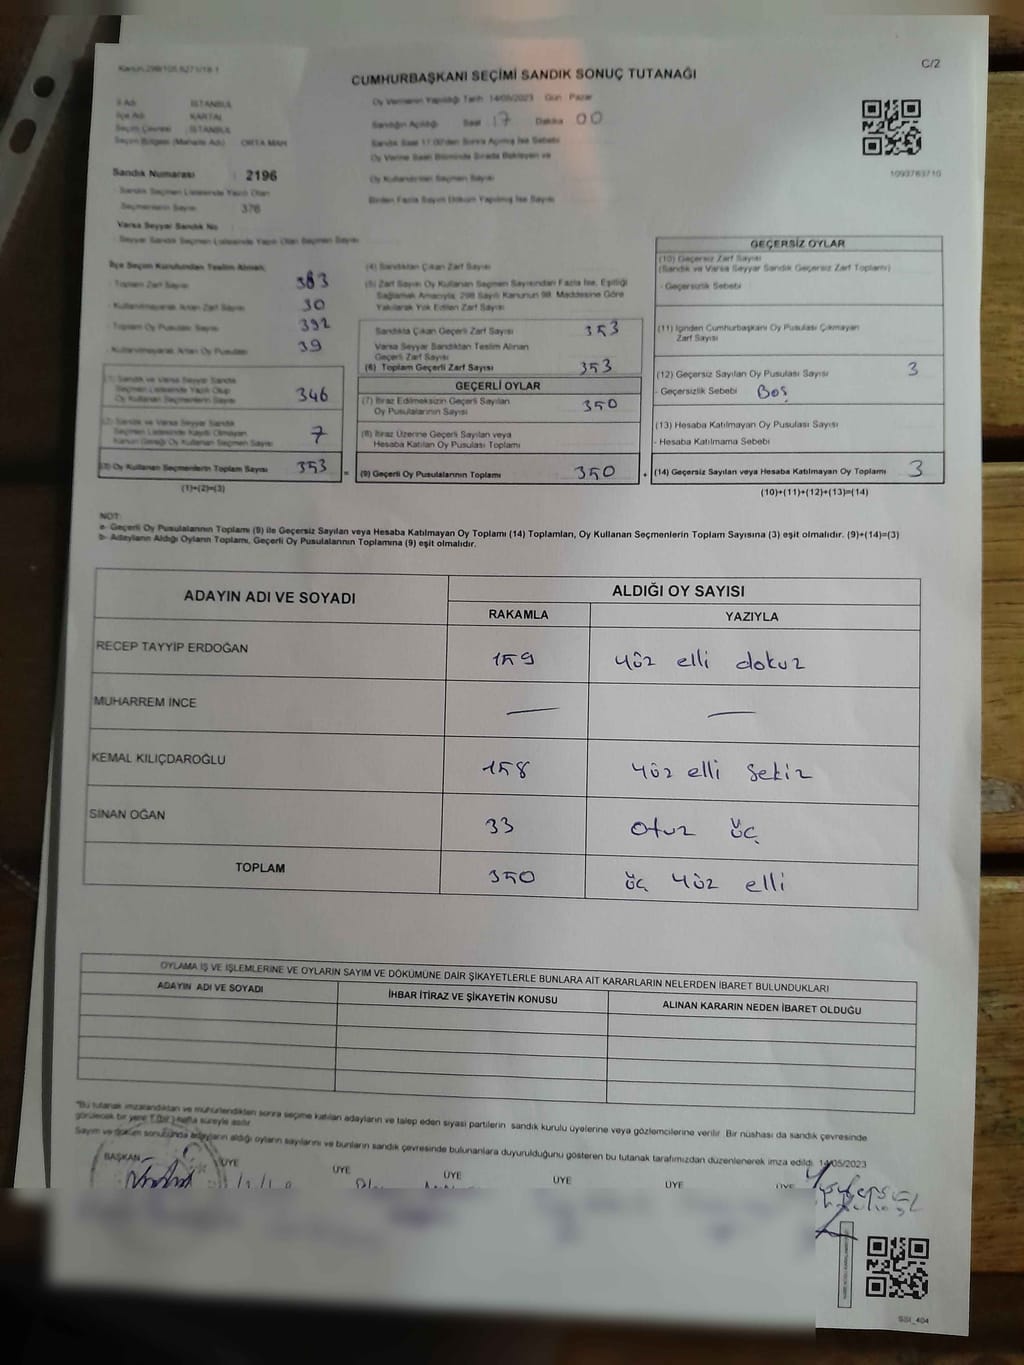 Kanun:298/105,6271/18-1
CUMHURBAŞKANI SEÇİMİ SANDIK SONUÇ TUTANAĞI
C/2
İl Adı : İSTANBUL
İlçe Adı : KARTAL
Seçim Çevresi : İSTANBUL
Seçim Bölgesi (Mahalle Adı) : ORTA MAH
Oy Vermenin Yapıldığı Tarih 14/05/2023 Gün : Pazar
Sandığın Açıldığı Saat 17 Dakika 00
Sandık Saat 17:00'den Sonra Açılmış İse Sebebi
Oy Verme Saati Bitiminde Sırada Bekleyen ve
Oy Kullandırılan Seçmen Sayısı
Birden Fazla Sayım Döküm Yapılmış İse Sayısı
1093763710
Sandık Numarası : 2196
Sandık Seçmen Listesinde Yazılı Olan
Seçmenlerin Sayısı : 376
Varsa Seyyar Sandık No
- Seyyar Sandık Seçmen Listesinde Yazılı Olan Seçmen Sayısı
İlçe Seçim Kurulundan Teslim Alınan;
- Toplam Zarf Sayısı 383
- Kullanılmayarak Artan Zarf Sayısı 30
- Toplam Oy Pusulası Sayısı 392
- Kullanılmayarak Artan Oy Pusulası 39
(1) Sandık ve Varsa Seyyar Sandık
Seçmen Listesinde Yazılı Olup
Oy Kullanan Seçmenlerin Sayısı 346
(2) Sandık ve Varsa Seyyar Sandık
Seçmen Listesinde Kayıtlı Olmayan
Kanun Gereği Oy Kullanan Seçmen Sayısı 7
(3) Oy Kullanan Seçmenlerin Toplam Sayısı 353
(1)+(2)=(3)
(4) Sandıktan Çıkan Zarf Sayısı
(5) Zarf Sayısı Oy Kullanan Seçmen Sayısından Fazla İse, Eşitliği
Sağlamak Amacıyla; 298 Sayılı Kanunun 98. Maddesine Göre
Yakılarak Yok Edilen Zarf Sayısı
Sandıkta Çıkan Geçerli Zarf Sayısı 353
Varsa Seyyar Sandıktan Teslim Alınan
Geçerli Zarf Sayısı
(6) Toplam Geçerli Zarf Sayısı 353
GEÇERLİ OYLAR
(7) İtiraz Edilmeksizin Geçerli Sayılan
Oy Pusulalarının Sayısı 350
(8) İtiraz Üzerine Geçerli Sayılan veya
Hesaba Katılan Oy Pusulası Toplamı
= (9) Geçerli Oy Pusulalarının Toplamı 350 +
GEÇERSİZ OYLAR
(10) Geçersiz Zarf Sayısı
(Sandık ve Varsa Seyyar Sandık Geçersiz Zarf Toplamı)
- Geçersizlik Sebebi
(11) İçinden Cumhurbaşkanı Oy Pusulası Çıkmayan
Zarf Sayısı
(12) Geçersiz Sayılan Oy Pusulası Sayısı 3
- Geçersizlik Sebebi Boş
(13) Hesaba Katılmayan Oy Pusulası Sayısı
- Hesaba Katılmama Sebebi
(14) Geçersiz Sayılan veya Hesaba Katılmayan Oy Toplamı 3
(10)+(11)+(12)+(13)=(14)
NOT:
a- Geçerli Oy Pusulalarının Toplamı (9) ile Geçersiz Sayılan veya Hesaba Katılmayan Oy Toplamı (14) Toplamları, Oy Kullanan Seçmenlerin Toplam Sayısına (3) eşit olmalıdır. (9)+(14)=(3)
b- Adayların Aldığı Oyların Toplamı, Geçerli Oy Pusulalarının Toplamına (9) eşit olmalıdır.
ADAYIN ADI VE SOYADI
ALDIĞI OY SAYISI
RAKAMLA YAZIYLA
RECEP TAYYİP ERDOĞAN 159 yüz elli dokuz
MUHARREM İNCE — —
KEMAL KILIÇDAROĞLU 158 yüz elli sekiz
SİNAN OĞAN 33 otuz üç
TOPLAM 350 üç yüz elli
OYLAMA İŞ VE İŞLEMLERİNE VE OYLARIN SAYIM VE DÖKÜMÜNE DAİR ŞİKAYETLERLE BUNLARA AİT KARARLARIN NELERDEN İBARET BULUNDUKLARI
ADAYIN ADI VE SOYADI İHBAR İTİRAZ VE ŞİKAYETİN KONUSU ALINAN KARARIN NEDEN İBARET OLDUĞU
*Bu tutanak imzalandıktan ve mühürlendikten sonra seçime katılan adayların ve talep eden siyasi partilerin sandık kurulu üyelerine veya gözlemcilerine verilir. Bir nüshası da sandık çevresinde
görülecek bir yere 1 (bir) hafta süreyle asılır.
Sayım ve döküm sonucunda adayların aldığı oyların sayılarını ve bunların sandık çevresinde bulunanlara duyurulduğunu gösteren bu tutanak tarafımızdan düzenlenerek imza edildi. 14/05/2023
BAŞKAN ÜYE ÜYE ÜYE ÜYE ÜYE ÜYE
SSI_404